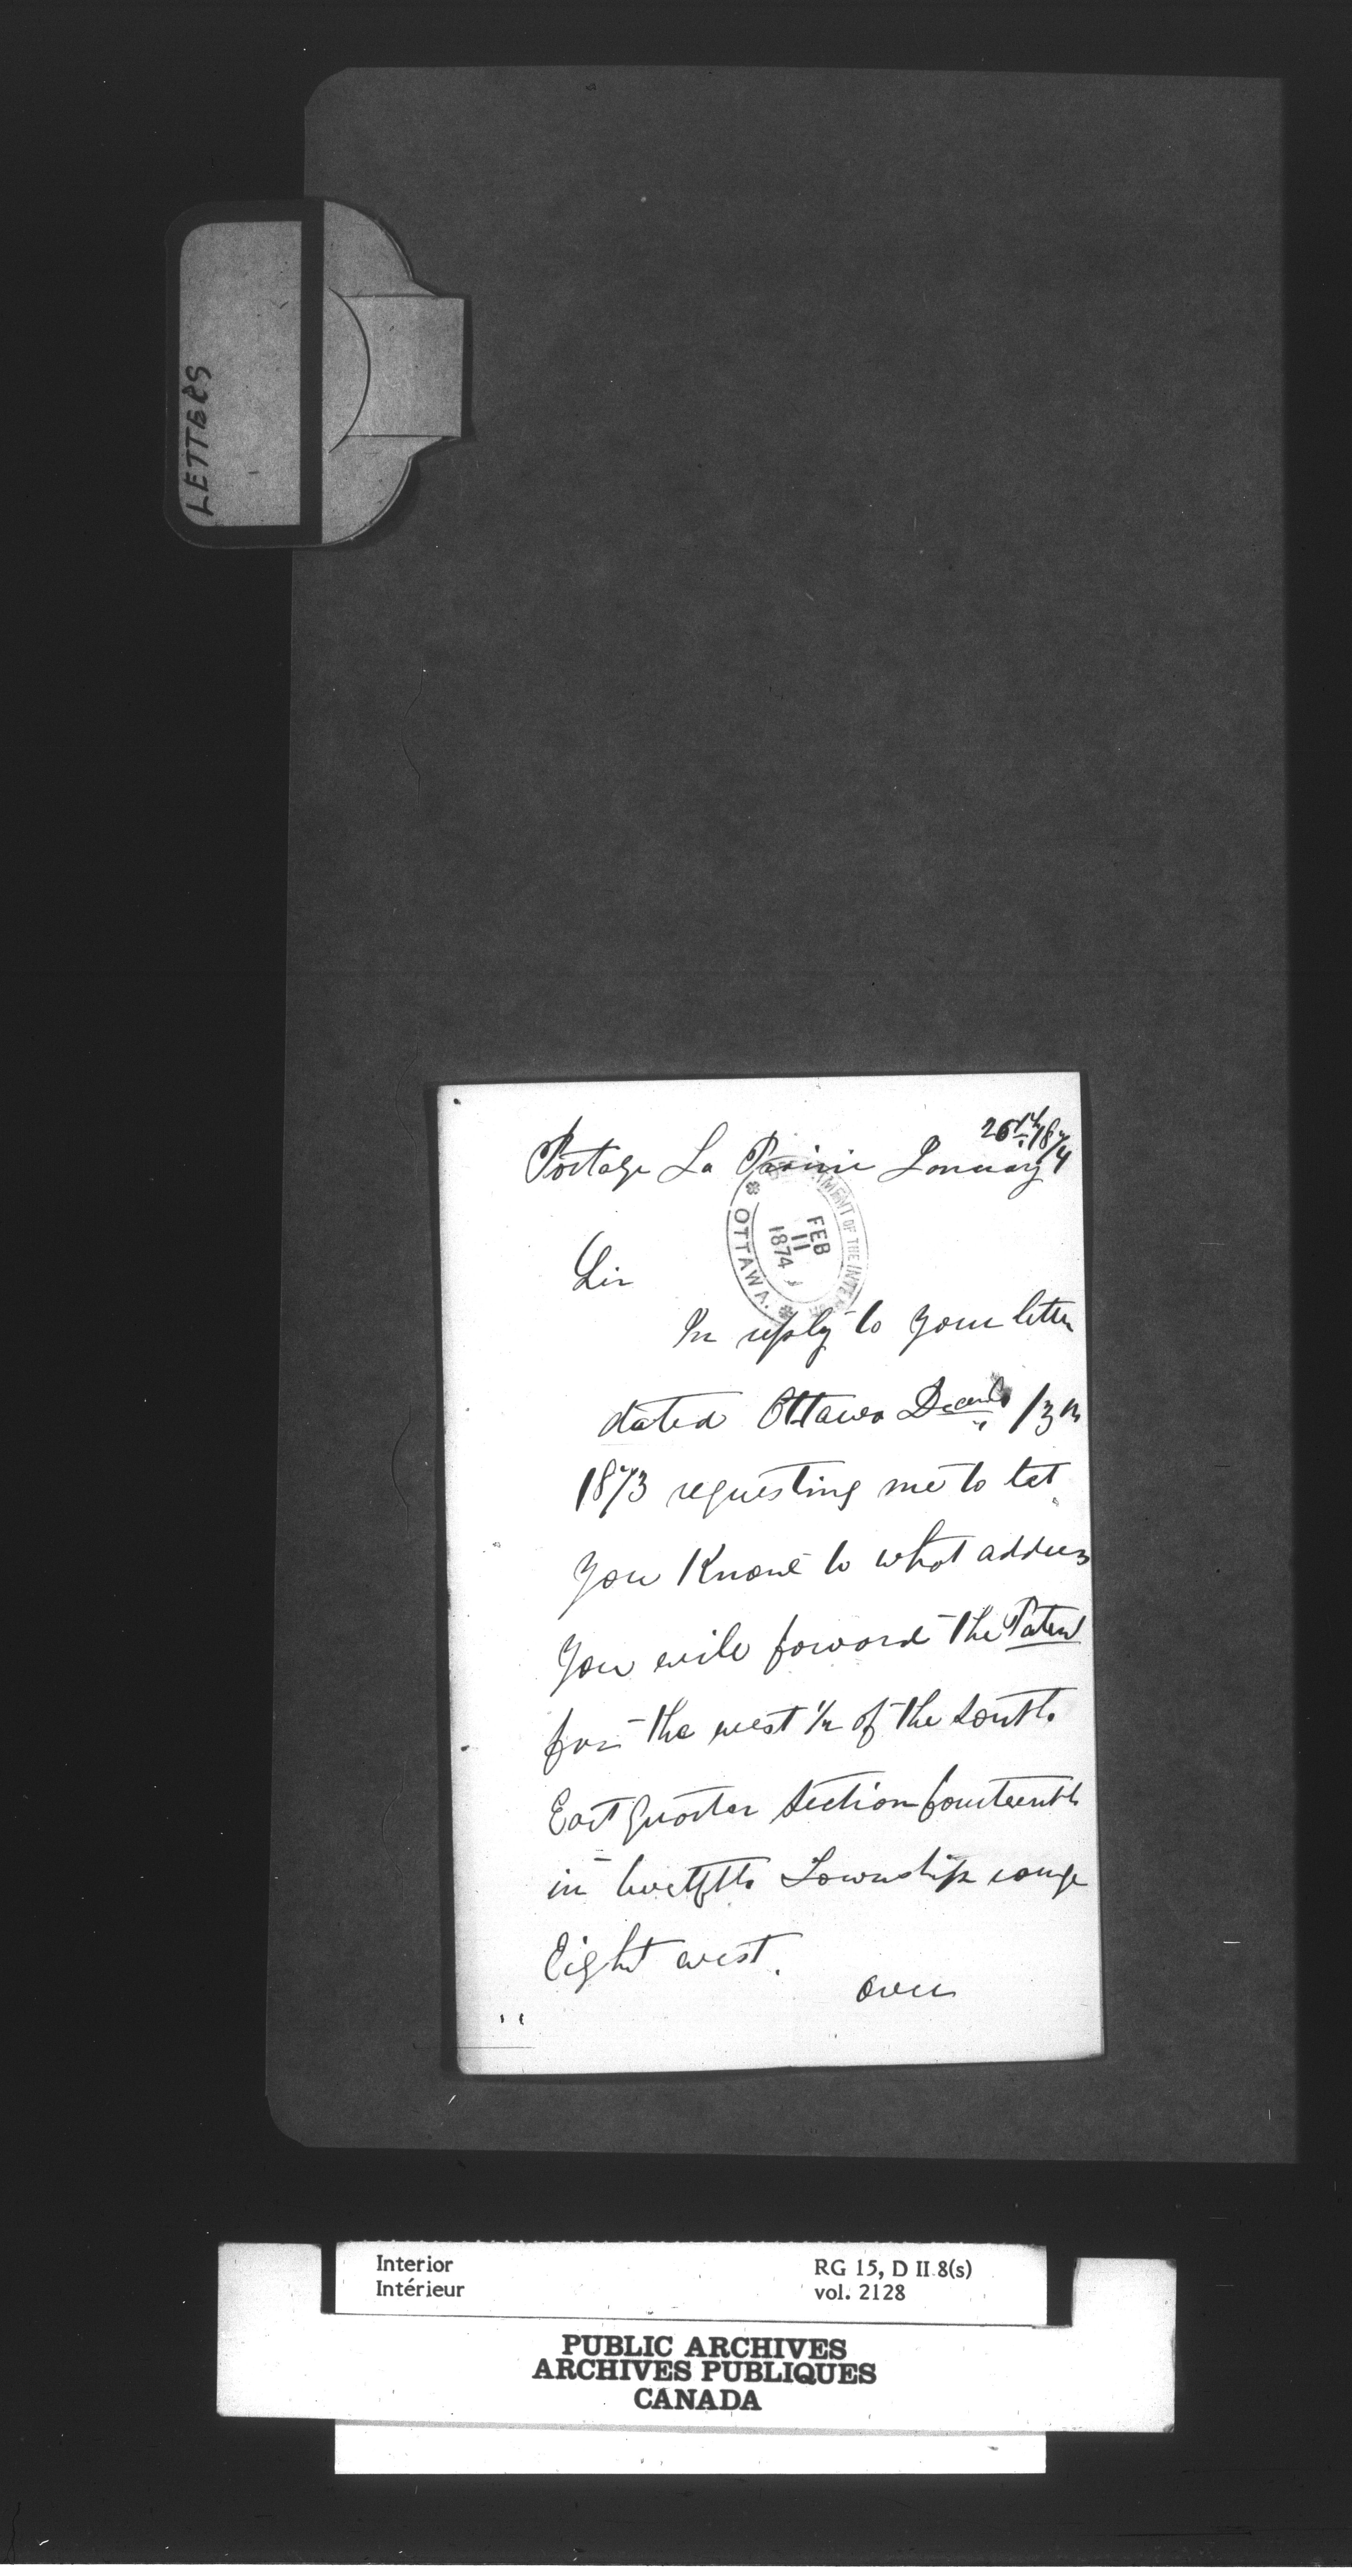 LETTERS
Portage La Prairie January 26th 1874
DEPARTMENT OF THE INTERIOR
FEB
11
1874
OTTAWA.
Sir
In reply to your letter
dated Ottawa 13th
1873 requesting me to let
you Know to what address
you will forward the Patent
for the west 1/2 of the South
East Quarter Section fourteenth
in twelfth Township range
Eight west.
over
Interior
Intérieur
RG 15, D II 8(s)
vol. 2128
PUBLIC ARCHIVES
ARCHIVES PUBLIQUES
CANADA